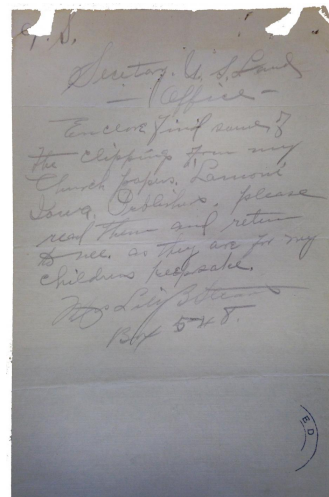 P. S.
Secetary. U. S. Land
- Office -
Enclose find some of
the clippings from my
Church papers, Lamoni
Iowa. please
read them and return
to me. as they are for my
childrens keepsake.
Mrs Lily B
Box 548.
E D